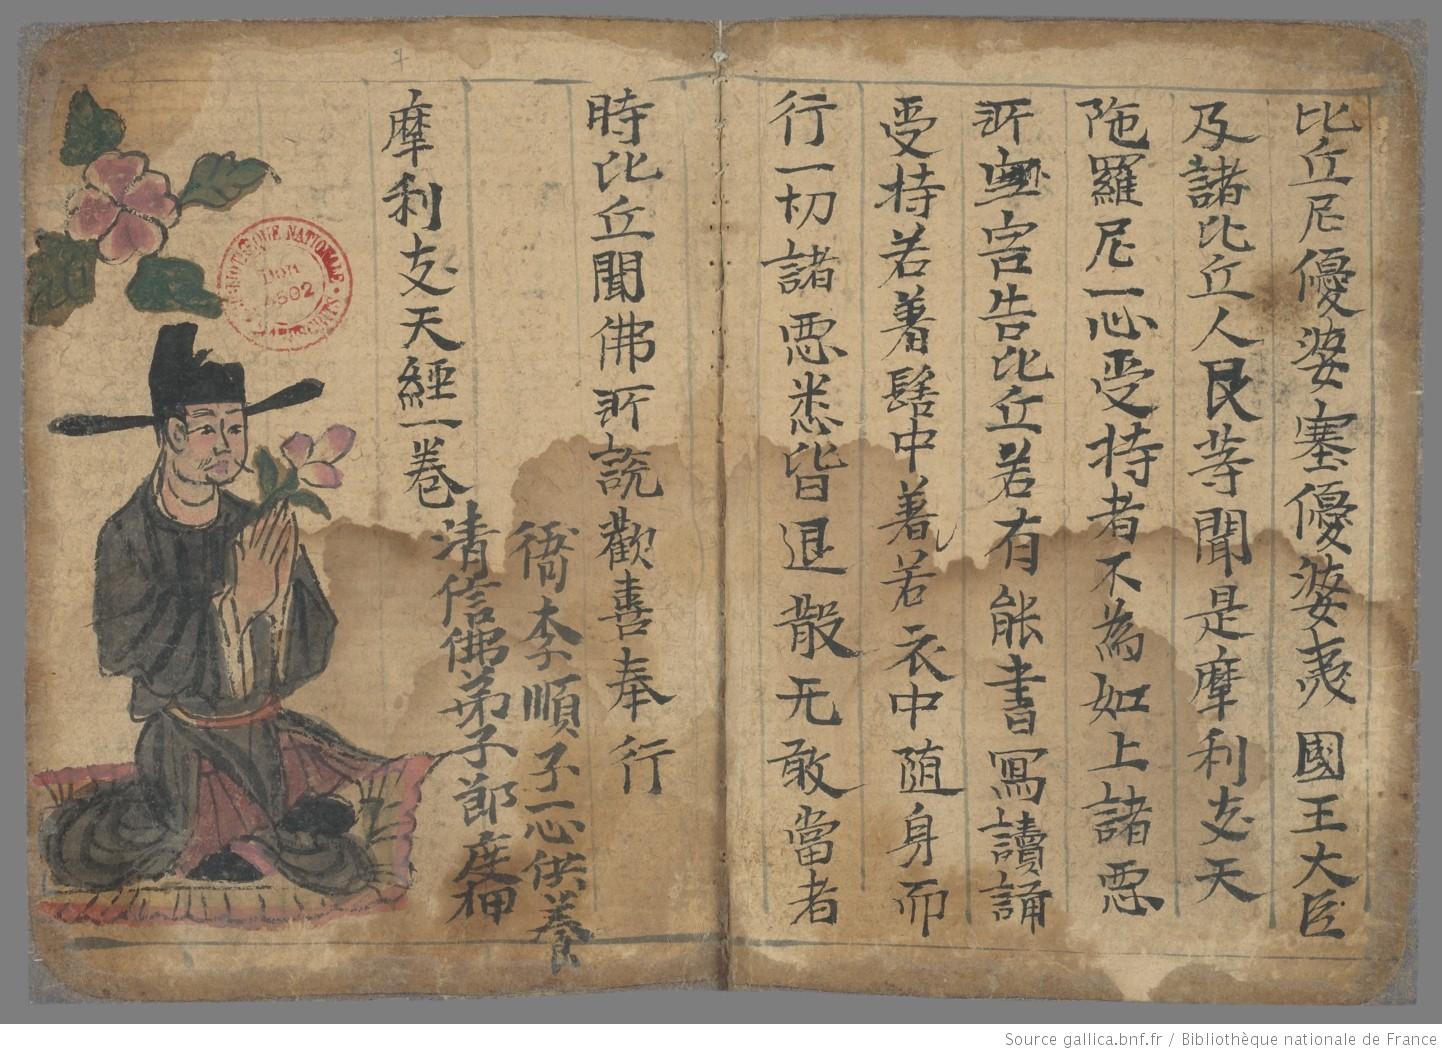 比丘尼優婆塞優婆夷國王大臣
及諸比丘人民等聞是摩利支天
陁羅尼一心受持者不為如上諸惡
所害告比丘若有能書寫讀誦
受持若著髻中著若衣中随身而
行一切諸惡悉皆退散无敢當者
時比丘聞佛所説歡喜奉行
摩利支天經一卷
清信佛弟子節度押
衙李順子一心供養
BIBLIOTHEQUE NATIONALE
Don
4502
MANUSCRITS
Source gallica.bnf.fr / Bibliothèque nationale de France